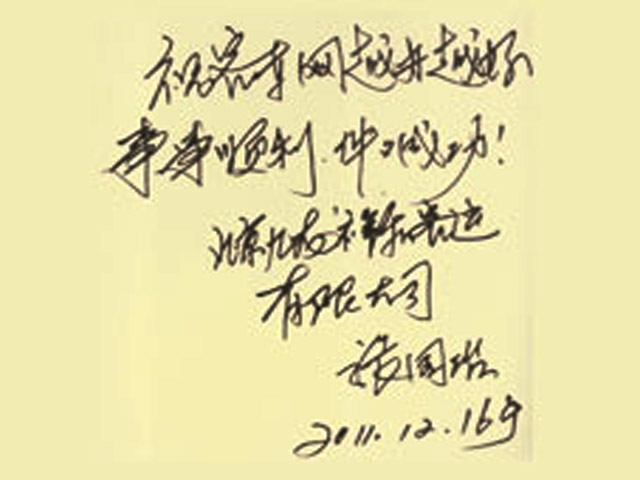 祝客车网越办越好
事事顺利.件々成功!
北京九龙祥和客运
有限公司
国
2011.12.16号